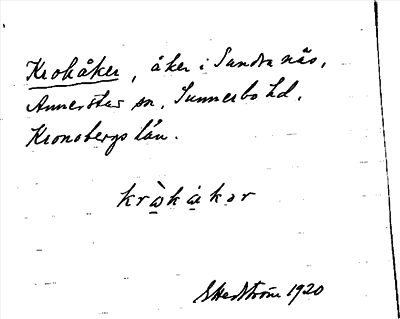 Krokåker, åker i Sundranäs,
Annerstad sn, Sunnerbo hd,
Kronobergs län.
kròkåkər
Hedström 1920